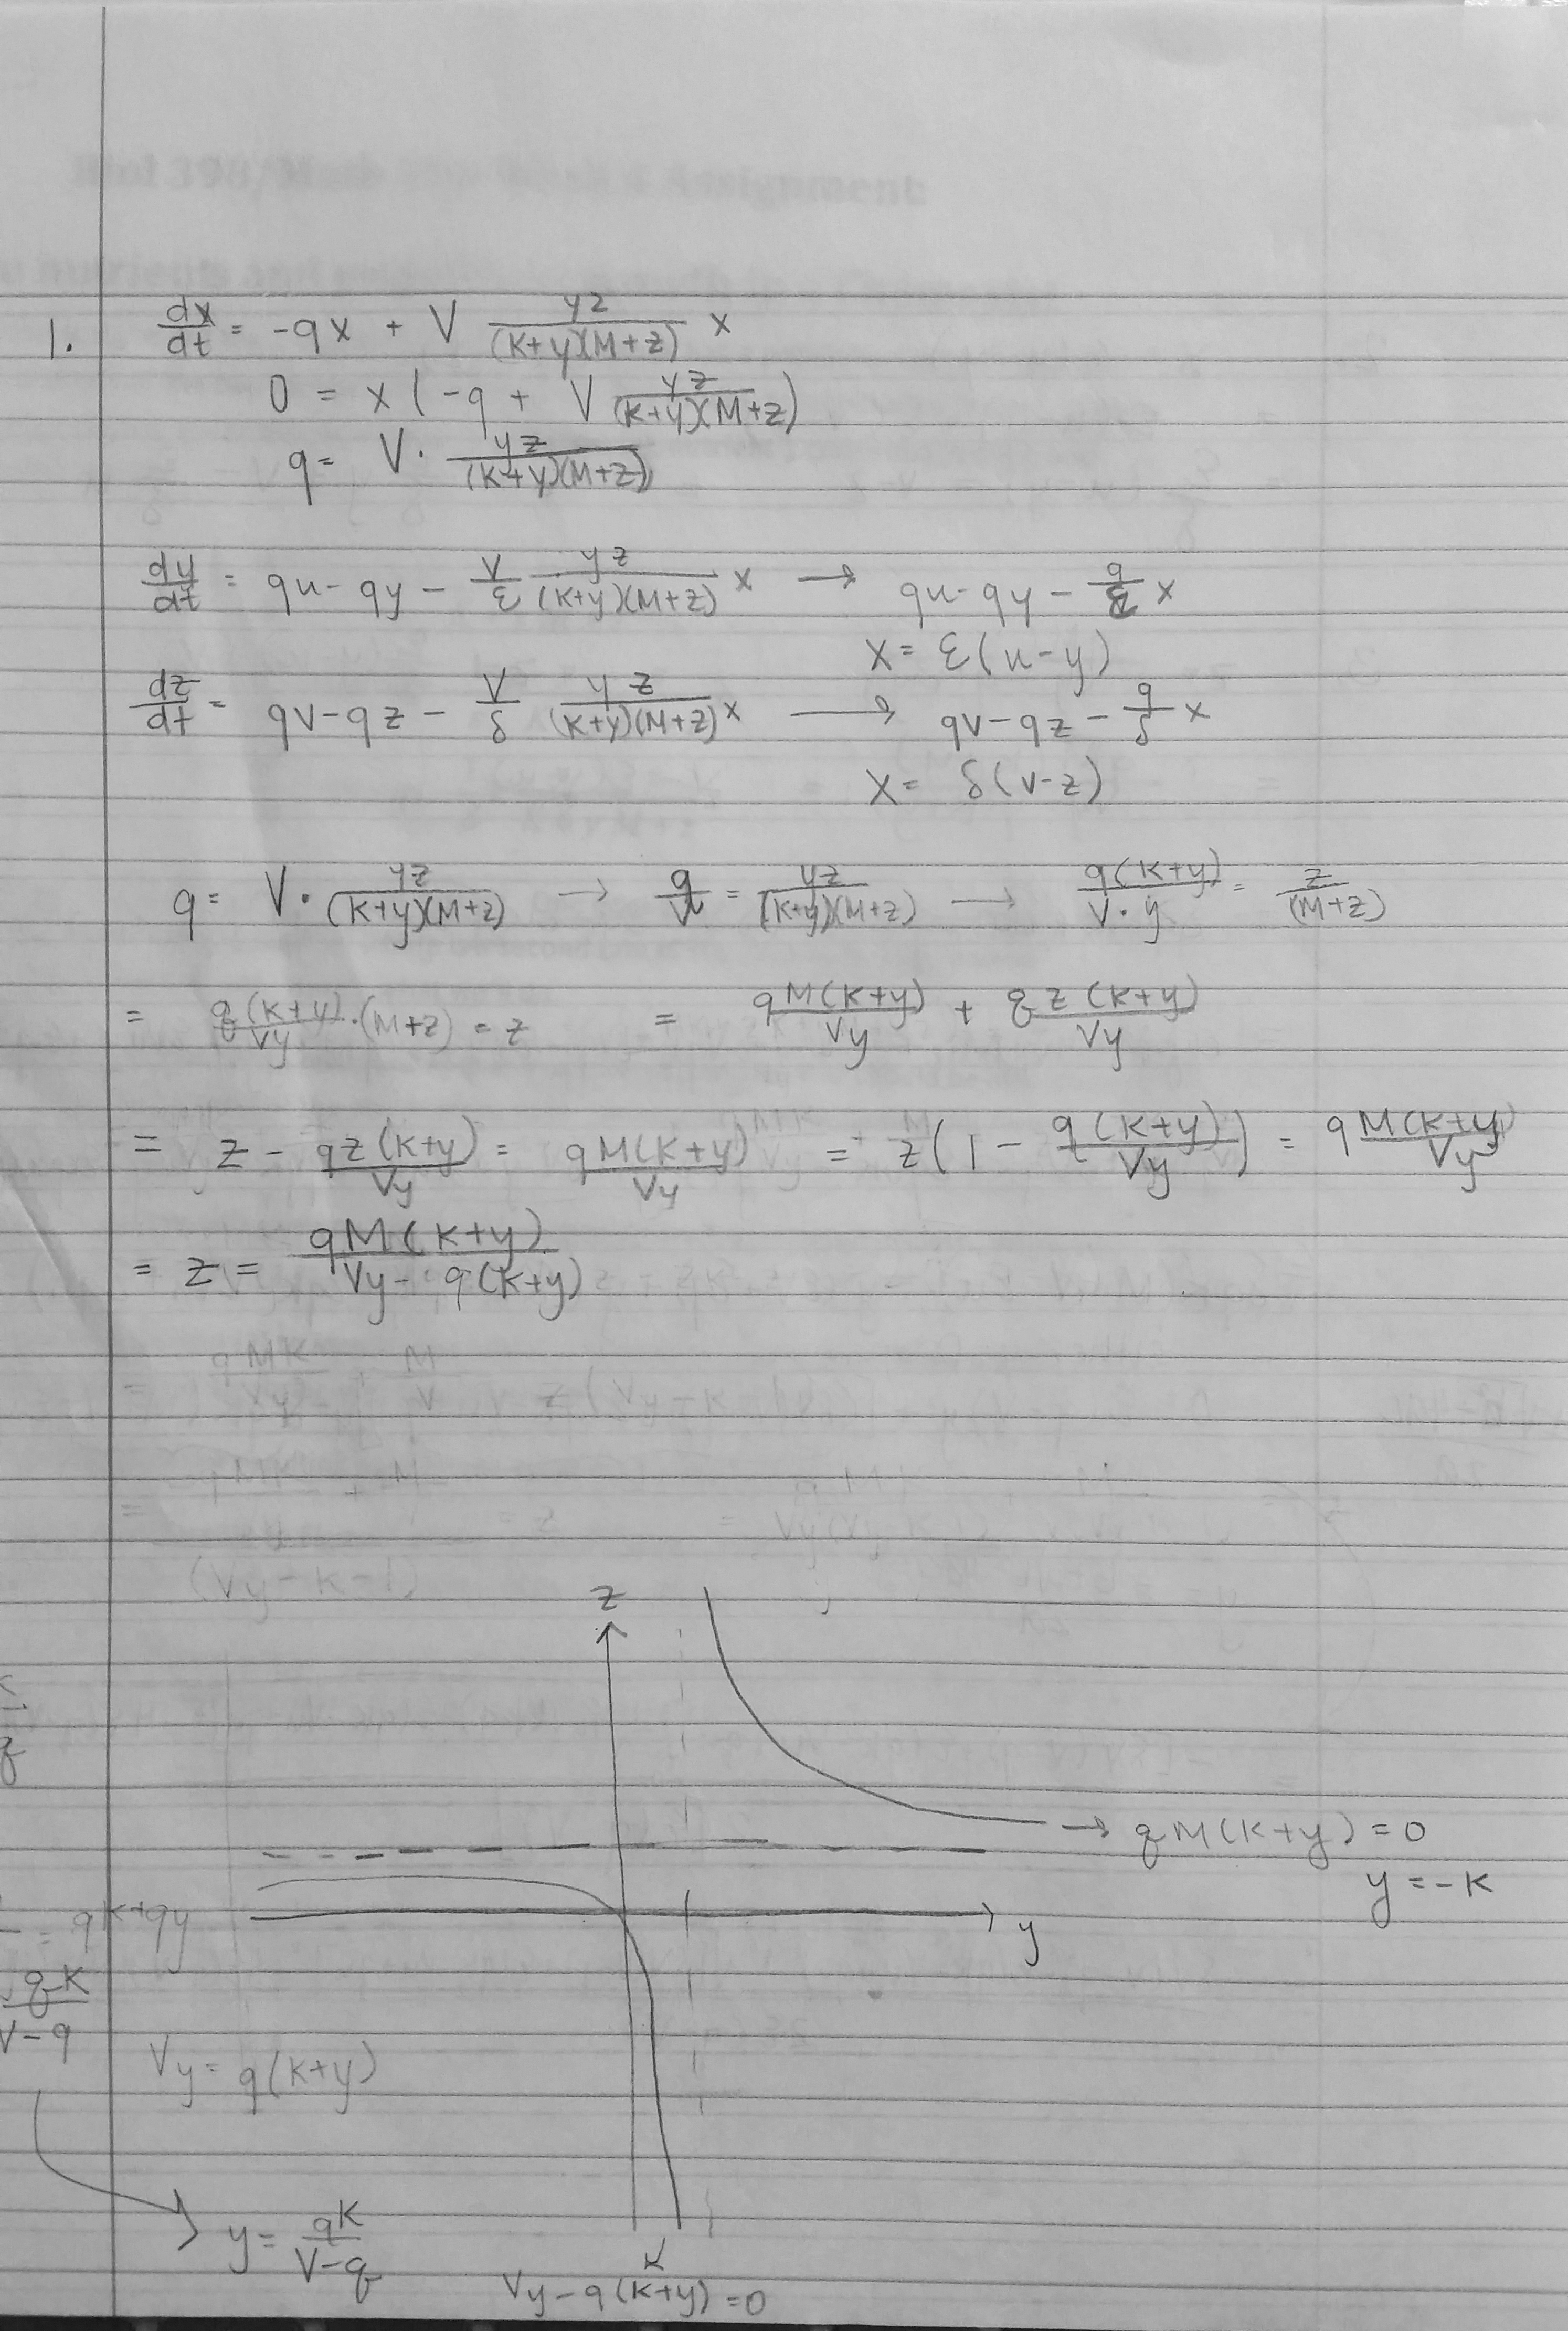 1. dx/dt = -qx + V yz/((K+y)(M+z)) x
0 = x(-q + V yz/((K+y)(M+z)))
q = V · yz/((K+y)(M+z))
dy/dt = qu - qy - V/ε yz/((K+y)(M+z)) x → qu - qy - q/ε x
x = ε(u-y)
dz/dt = qv - qz - V/δ yz/((K+y)(M+z)) x → qv - qz - q/δ x
x = δ(v-z)
q = V · yz/((K+y)(M+z)) → q/V = yz/((K+y)(M+z)) → q(K+y)/(V·y) = z/(M+z)
= q(K+y)/Vy · (M+z) = z = qM(K+y)/Vy + qz(K+y)/Vy
= z - qz(K+y)/Vy = qM(K+y)/Vy = z(1 - q(K+y)/Vy) = qM(K+y)/Vy
= z = qM(K+y)/(Vy - q(K+y))
z
→ qM(K+y) = 0
y = -K
y
= qK+qy
qK/(V-q)
Vy = q(K+y)
y = qK/(V-q)
Vy - q(K+y) = 0